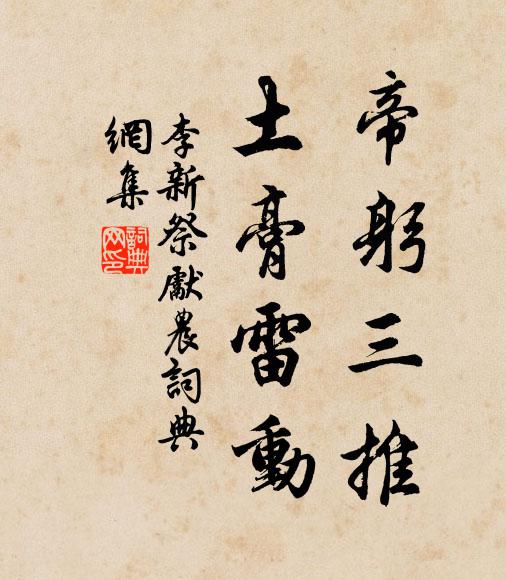 帝躬三推
土膏雷動
李新祭獻農詞典
網集
詞典
网印